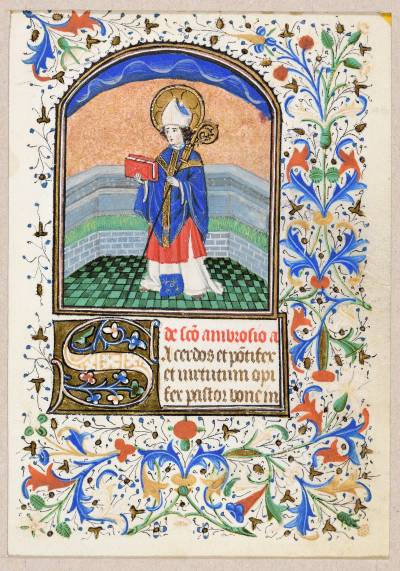 de sc̄o ambrosio a
SAcerdos et pōtifex
et uirtutum opi
fex pastor bone in